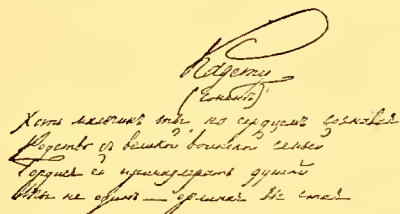 Кадету
(Сонетъ)
Хоть мальчикъ ты, но сердцемъ сознавая
Родство съ великой воинской семьей
Гордися ей принадлежать душой
Ты не одинъ — орлиная вы стая